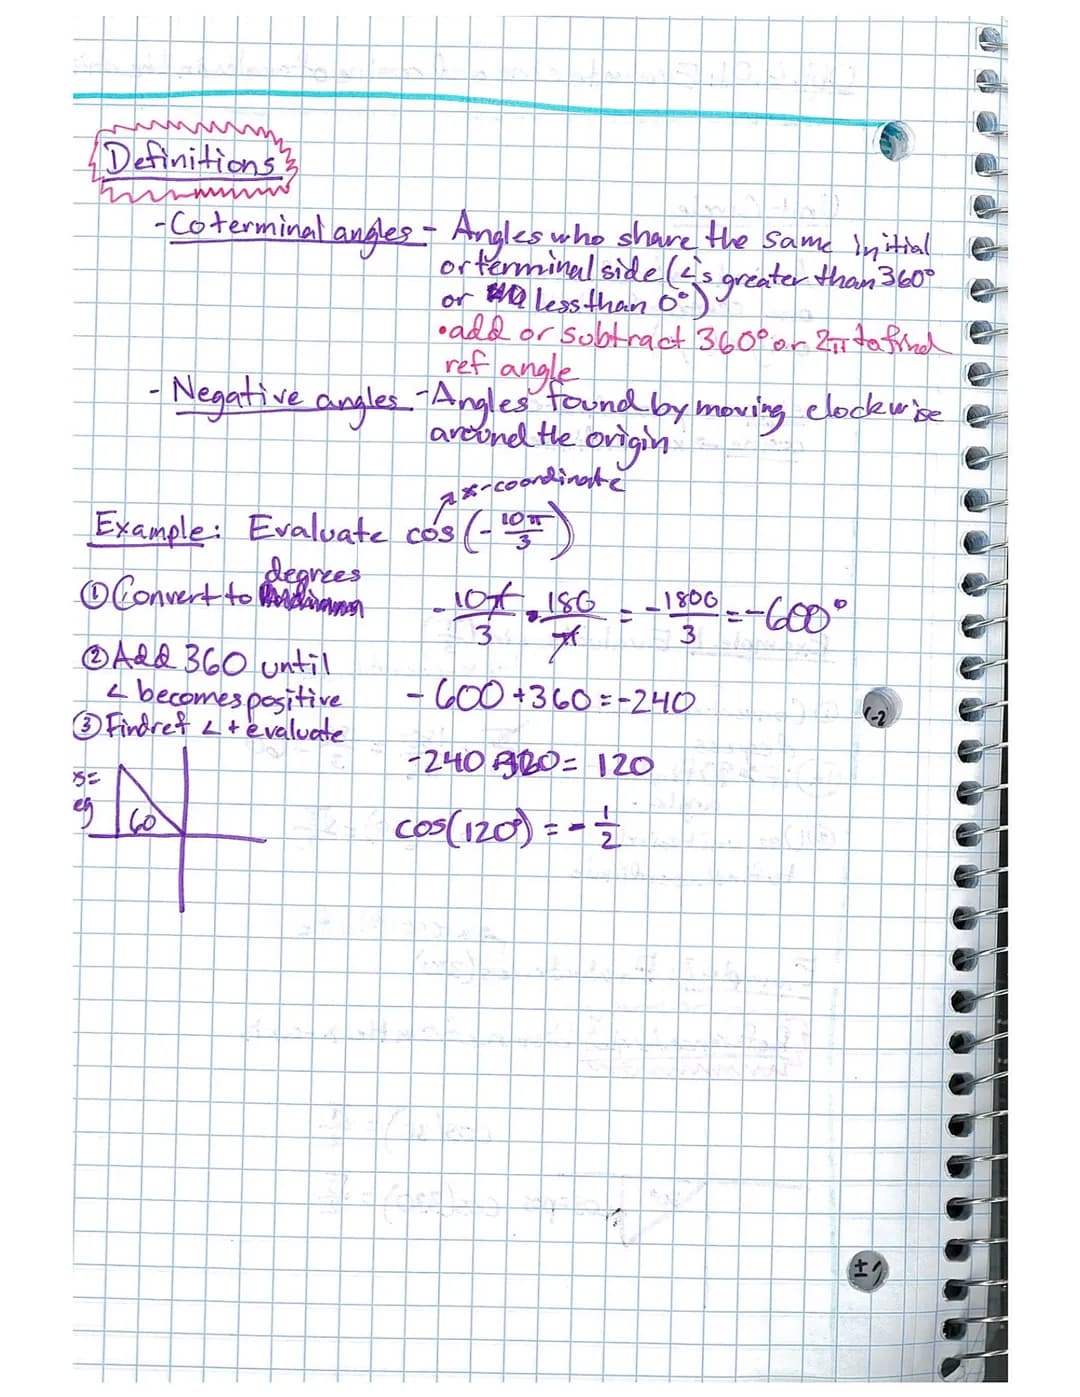 Definitions
- Coterminal angles - Angles who share the same initial
or terminal side (∠'s greater than 360°
or less than 0°)
• add or subtract 360° or 2π to find
ref angle
- Negative angles - Angles found by moving clockwise
around the origin
x-coordinate
Example: Evaluate cos(-10π/3)
① Convert to degrees
-10π/3 · 180/π = -1800/3 = -600°
② Add 360 until
∠ becomes positive
-600 + 360 = -240
③ Find ref ∠ + evaluate
-240 = 120
60
cos(120°) = -1/2
(-2
±1